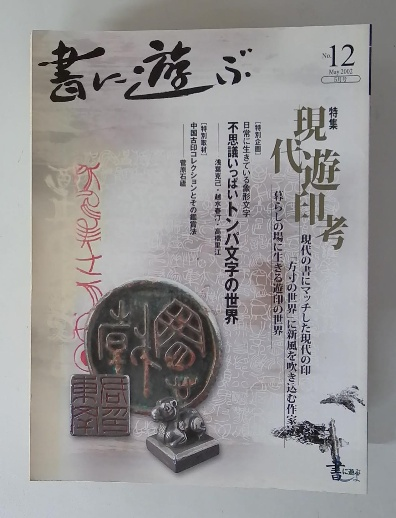 書に遊ぶ
No.12
May 2002
5月号
特集
現代遊印考
現代の書にマッチした現代の印
「方寸の世界」に新風を吹き込む作家
暮らしの場に生きる遊印の世界
［特別企画］
日常に生きている象形文字
不思議いっぱいトンパ文字の世界
浅葉克己・越水春汀・高橋里江
［特別取材］
中国古印コレクションとその鑑賞法
菅原石廬
書に遊ぶ